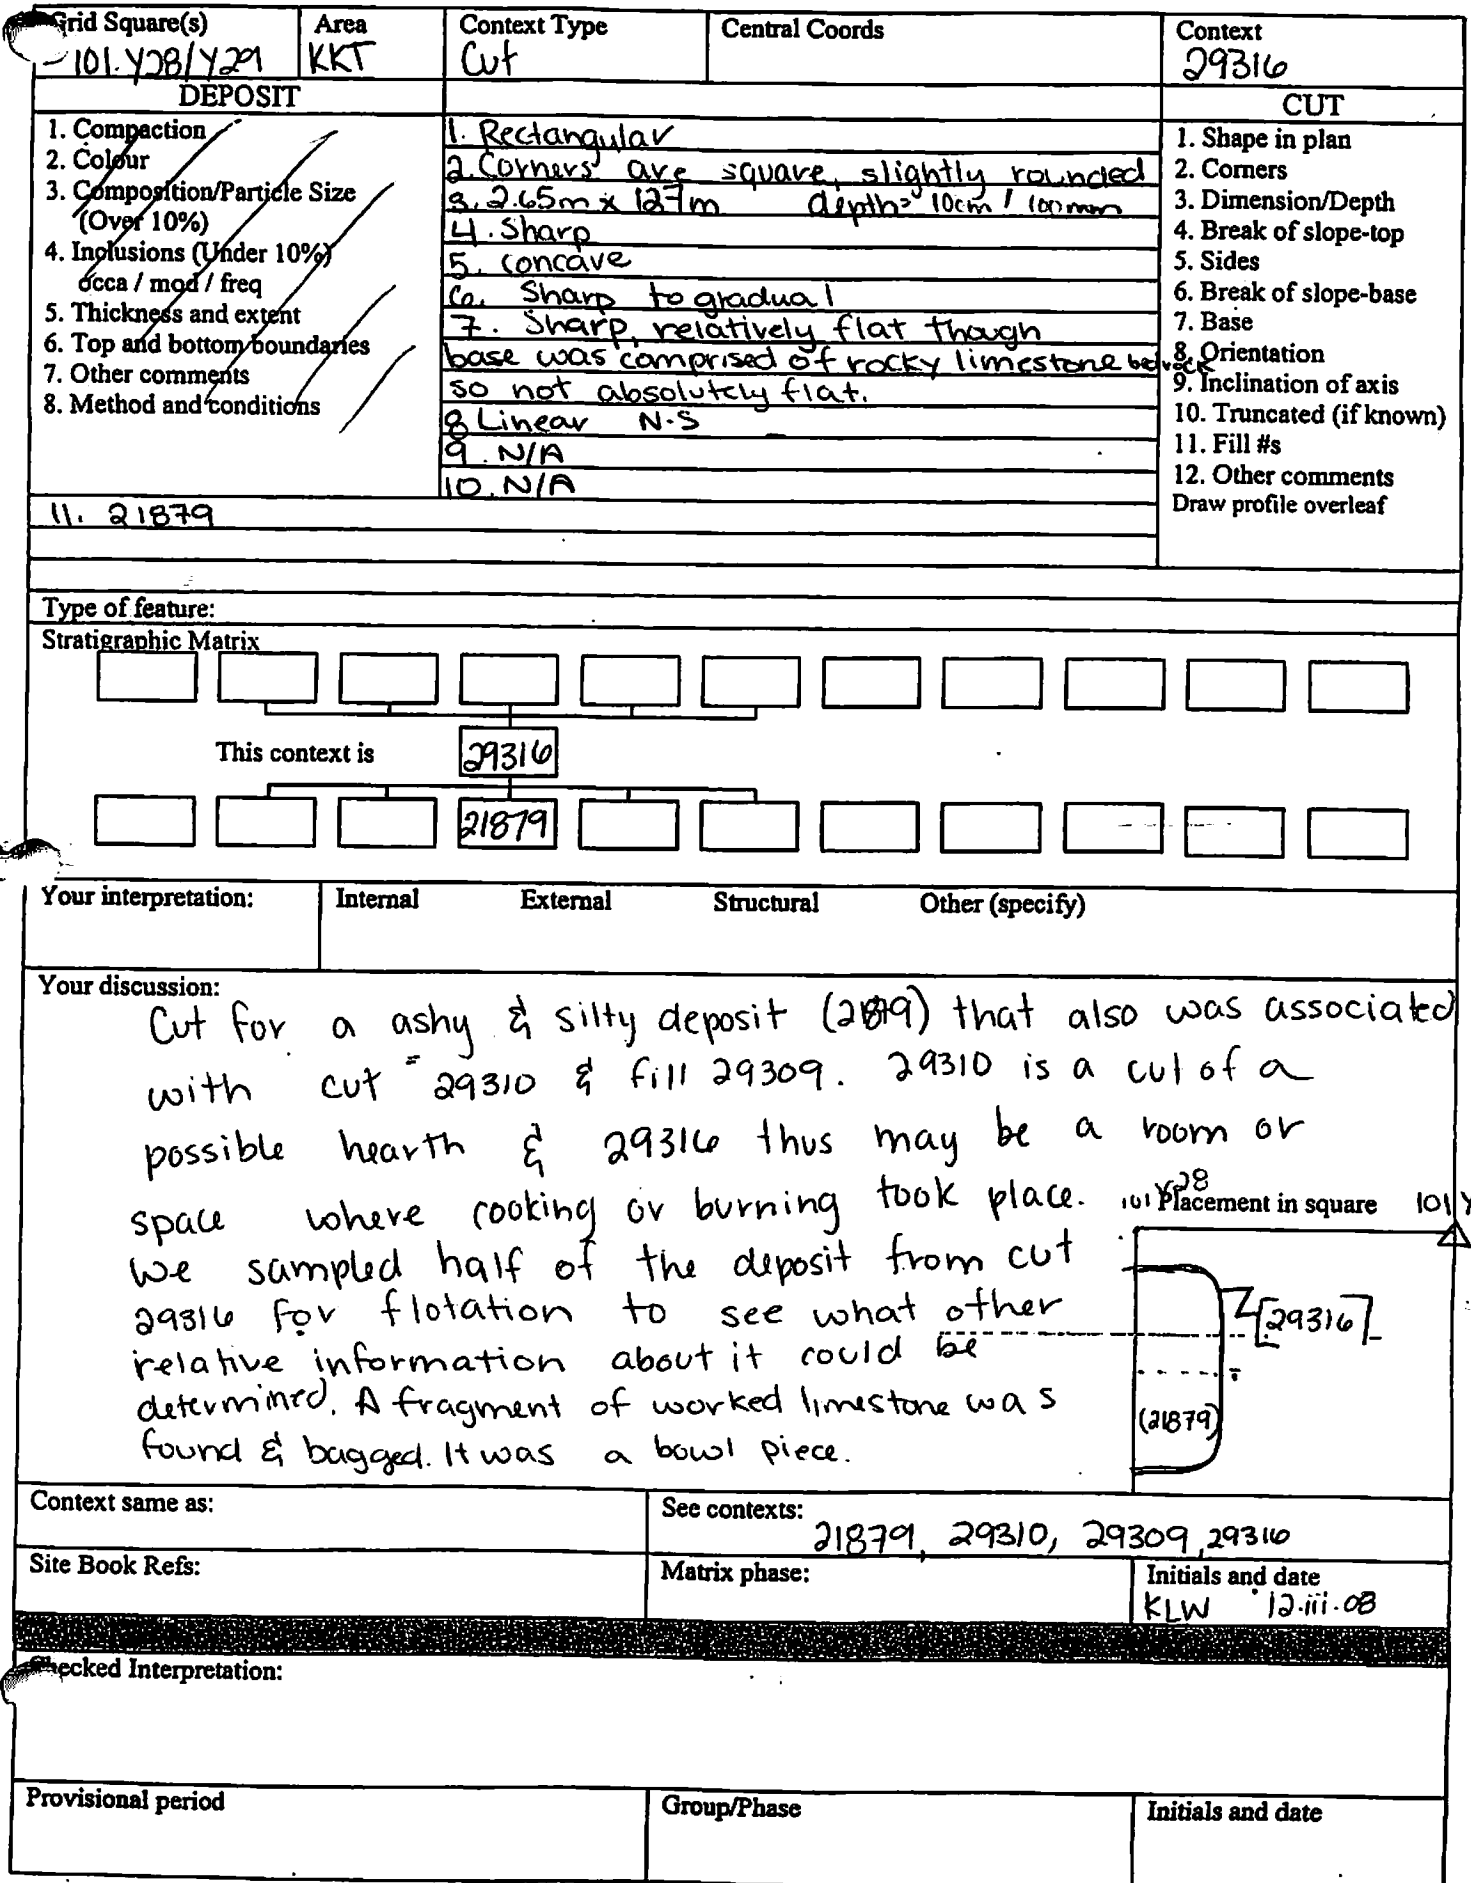 Grid Square(s) Area Context Type Central Coords Context
101.Y28/Y29 KKT Cut 29316
DEPOSIT CUT
1. Compaction
2. Colour
3. Composition/Particle Size
(Over 10%)
4. Inclusions (Under 10%)
occa / mod / freq
5. Thickness and extent
6. Top and bottom boundaries
7. Other comments
8. Method and conditions
1. Rectangular
2. Corners are square, slightly rounded
3. 2.65m x 127m depth= 10cm / 100mm
4. Sharp
5. concave
6. Sharp to gradual
7. Sharp, relatively flat though
base was comprised of rocky limestone bedrock
so not absolutely flat.
8 Linear N-S
9. N/A
10. N/A
11. 21879
1. Shape in plan
2. Corners
3. Dimension/Depth
4. Break of slope-top
5. Sides
6. Break of slope-base
7. Base
8. Orientation
9. Inclination of axis
10. Truncated (if known)
11. Fill #s
12. Other comments
Draw profile overleaf
Type of feature:
Stratigraphic Matrix
This context is 29316
21879
Your interpretation: Internal External Structural Other (specify)
Your discussion:
Cut for a ashy & silty deposit (21879) that also was associated
with cut 29310 & fill 29309. 29310 is a cut of a
possible hearth & 29316 thus may be a room or
space where cooking or burning took place.
We sampled half of the deposit from cut
29316 for flotation to see what other
relative information about it could be
determined. A fragment of worked limestone was
found & bagged. It was a bowl piece.
101 Y28
Placement in square 101 Y
[29316]
(21879)
Context same as: See contexts:
21879, 29310, 29309, 29316
Site Book Refs: Matrix phase: Initials and date
KLW 12.iii.08
Checked Interpretation:
Provisional period Group/Phase Initials and date